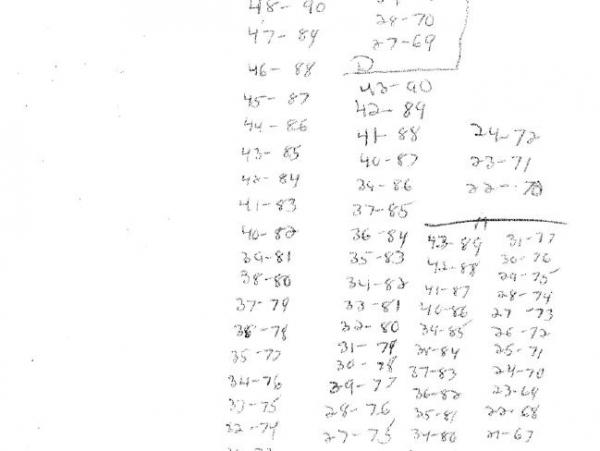 48-90
47-89
46-88
45-87
44-86
43-85
42-84
41-83
40-82
39-81
38-80
37-79
38-78
35-77
34-76
33-75
32-74
28-70
27-69
D
43-90
42-89
41-88
40-87
39-86
37-85
36-84
35-83
34-82
33-81
32-80
31-79
30-78
29-77
28-76
27-75
24-72
23-71
22-70
43-89
42-88
41-87
40-86
39-85
38-84
37-83
36-82
35-81
34-80
31-77
30-76
29-75
28-74
27-73
26-72
25-71
24-70
23-69
22-68
21-67